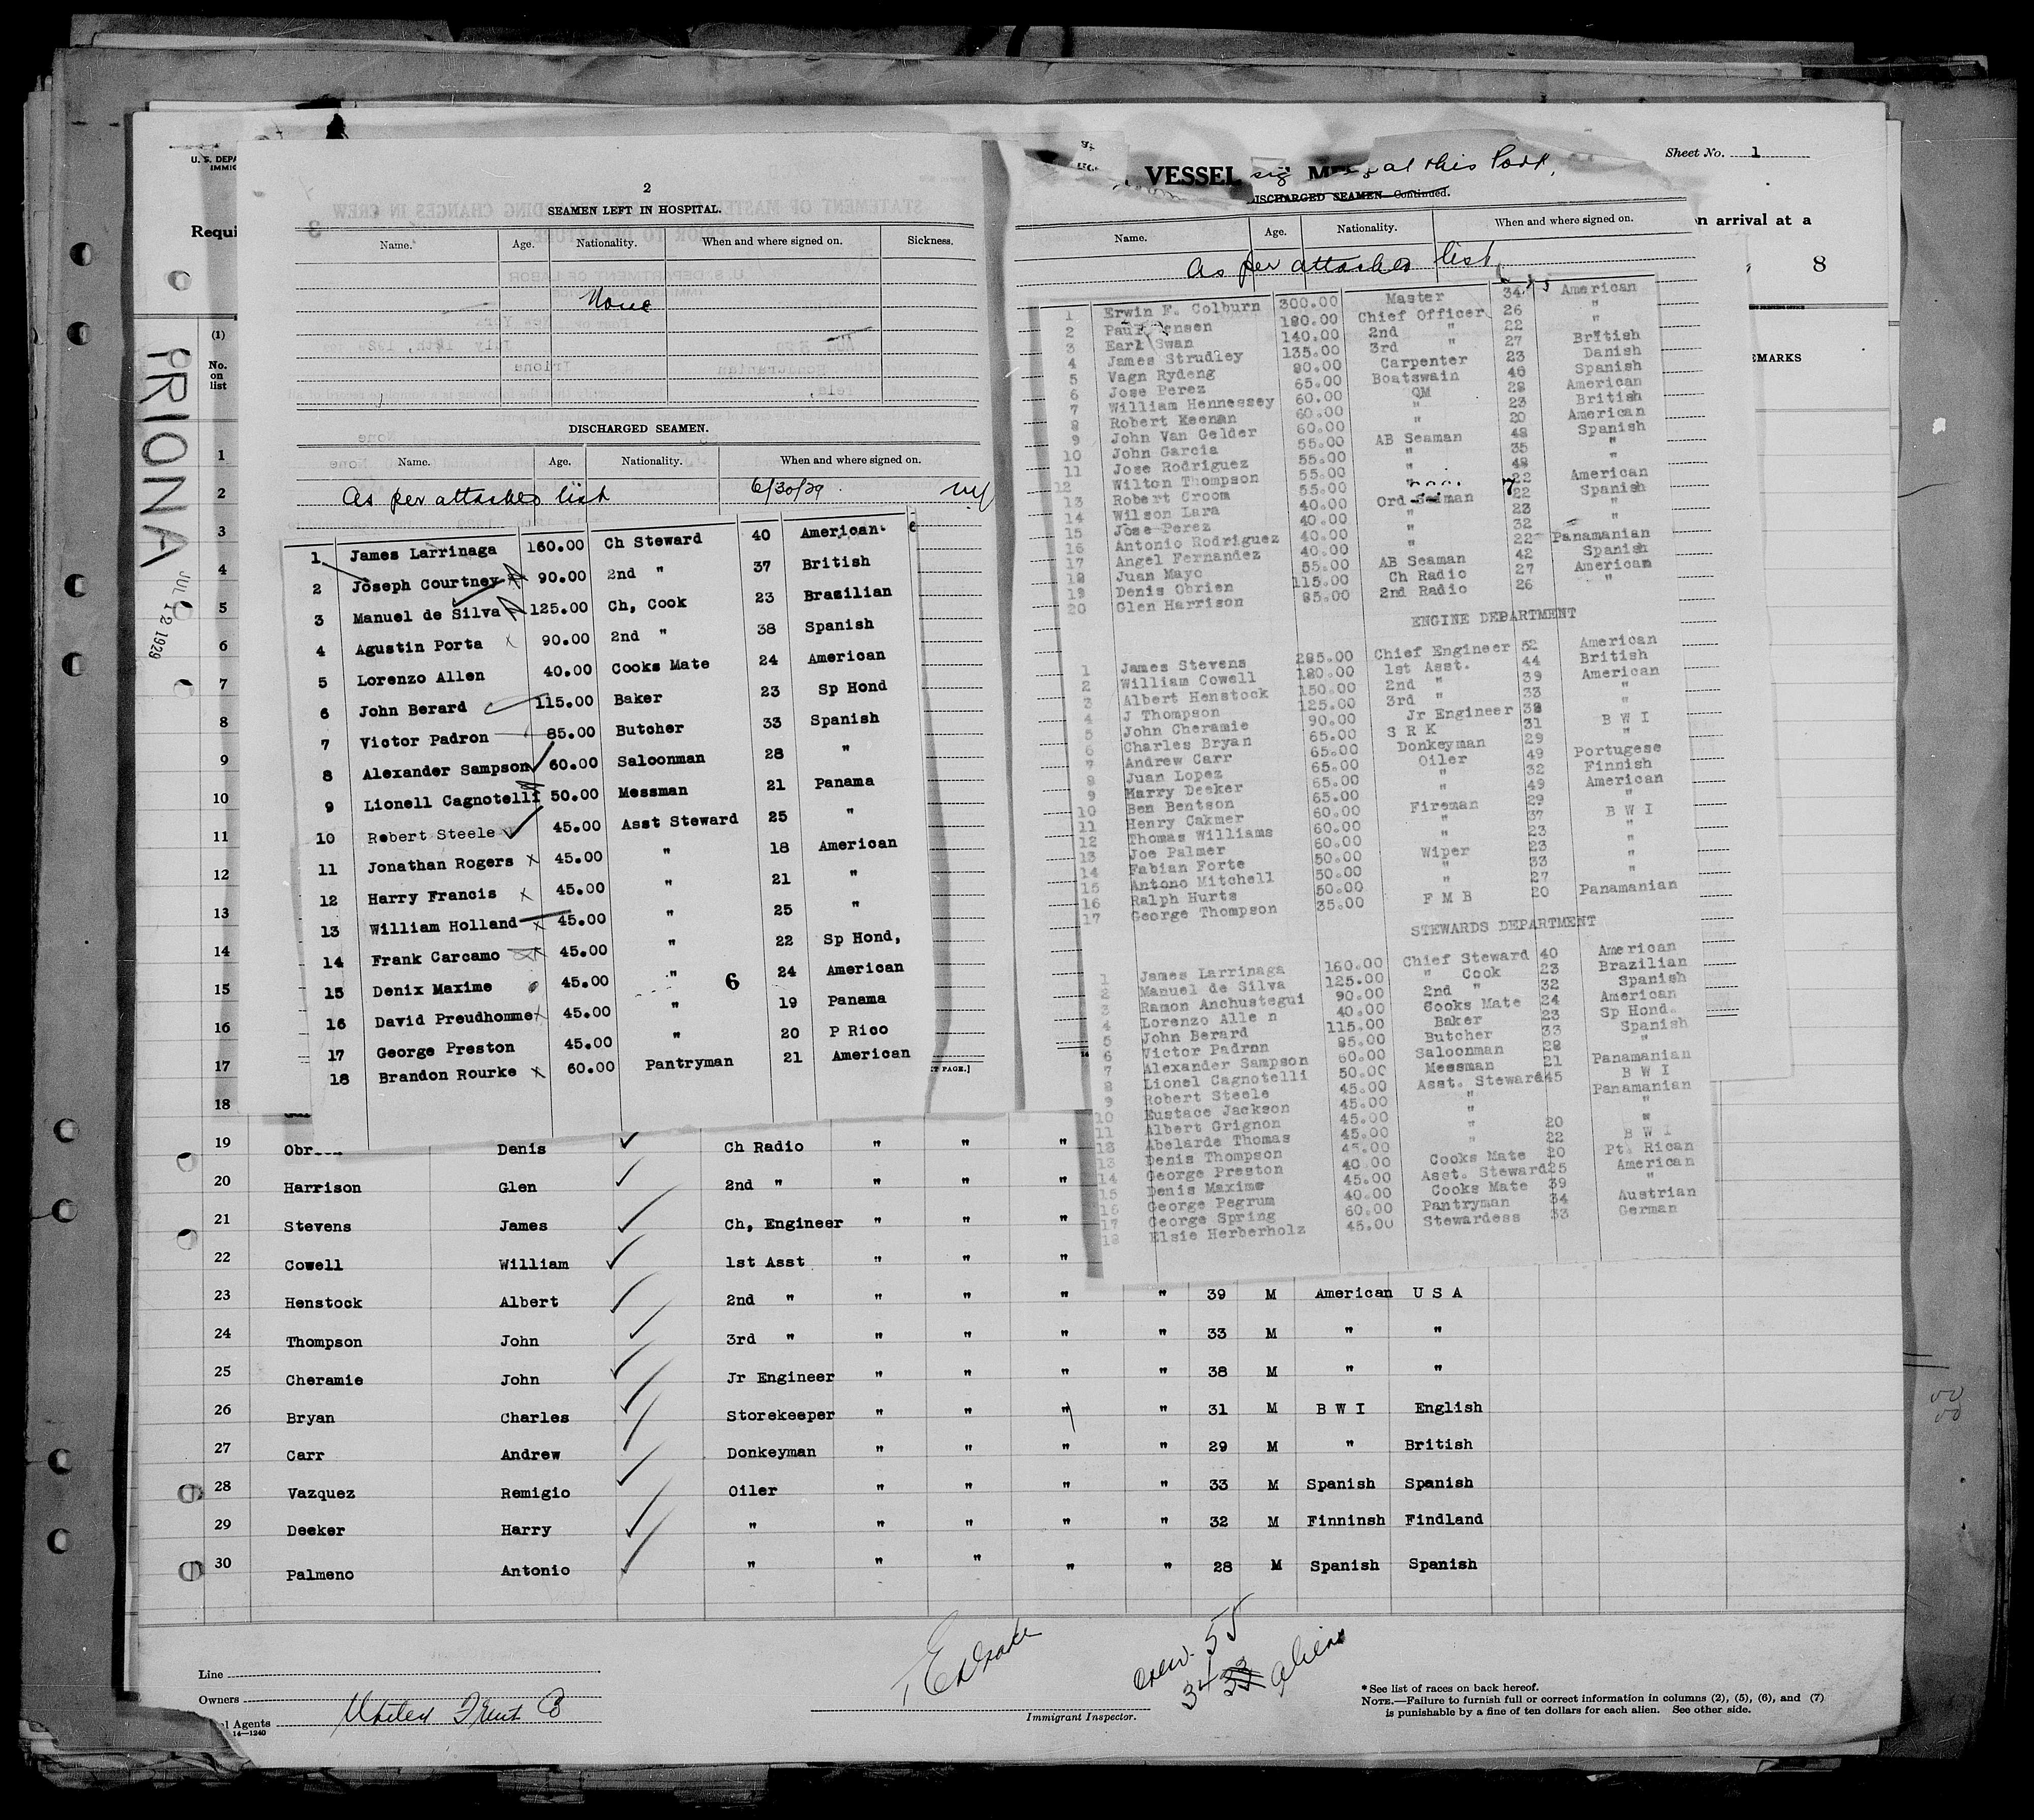 U. S. DEPA
IMMIG
Requi
PRIONA
JUL 12 1929
2
SEAMEN LEFT IN HOSPITAL.
Name. Age. Nationality. When and where signed on. Sickness.
None
DISCHARGED SEAMEN.
Name. Age. Nationality. When and where signed on.
As per attached list 6/30/29
1 James Larrinaga 160.00 Ch Steward 40 American
2 Joseph Courtney 90.00 2nd " 37 British
3 Manuel de Silva 125.00 Ch, Cook 23 Brasilian
4 Agustin Porta 90.00 2nd " 38 Spanish
5 Lorenzo Allen 40.00 Cooks Mate 24 American
6 John Berard 115.00 Baker 23 Sp Hond
7 Victor Padron 85.00 Butcher 33 Spanish
8 Alexander Sampson 60.00 Saloonman 28 "
9 Lionell Cagnotelli 50.00 Messman 21 Panama
10 Robert Steele 45.00 Asst Steward 25 "
11 Jonathan Rogers 45.00 " 18 American
12 Harry Francis 45.00 " 21 "
13 William Holland 45.00 " 25 "
14 Frank Carcamo 45.00 " 22 Sp Hond,
15 Denix Maxime 45.00 " 6 24 American
16 David Preudhomme 45.00 " 19 Panama
17 George Preston 45.00 " 20 P Rico
18 Brandon Rourke 60.00 Pantryman 21 American
T PAGE.]
Sheet No. 1
VESSEL sig at this Port,
DISCHARGED SEAMEN—Continued.
Name. Age. Nationality. When and where signed on.
As per attached list
n arrival at a
8
EMARKS
1 Erwin F. Colburn 300.00 Master 34 American
2 Paul Jensen 180.00 Chief Officer 26 "
3 Earl Swan 140.00 2nd " 22 "
4 James Strudley 135.00 3rd " 27 British
5 Vagn Rydeng 80.00 Carpenter 23 Danish
6 Jose Perez 65.00 Boatswain 46 Spanish
7 William Hennessey 60.00 QM 28 American
8 Robert Keenan 60.00 " 23 British
9 John Van Gelder 60.00 " 20 American
10 John Garcia 55.00 AB Seaman 48 Spanish
11 Jose Rodriguez 55.00 " 35 "
12 Wilton Thompson 55.00 " 48
13 Robert Croom 55.00 " 22 American
14 Wilson Lara 40.00 Ord Seaman 22 Spanish
15 Jose Perez 40.00 " 23 "
16 Antonio Rodriguez 40.00 " 32 "
17 Angel Fernandez 40.00 " 22 Panamanian
18 Juan Mayo 55.00 AB Seaman 42 Spanish
19 Denis Obrien 115.00 Ch Radio 27 American
20 Glen Harrison 85.00 2nd Radio 26 "
ENGINE DEPARTMENT
1 James Stevens 285.00 Chief Engineer 52 American
2 William Cowell 180.00 1st Asst. 44 British
3 Albert Henstock 150.00 2nd " 39 American
4 J Thompson 125.00 3rd " 33 "
5 John Cheramie 90.00 Jr Engineer 38 "
6 Charles Bryan 65.00 S R K 31 B W I
7 Andrew Carr 65.00 Donkeyman 29 "
8 Juan Lopez 65.00 Oiler 49 Portugese
9 Harry Deeker 65.00 " 32 Finnish
10 Ben Bentson 65.00 " 49 American
11 Henry Cakmer 60.00 Fireman 29 "
12 Thomas Williams 60.00 " 37 B W I
13 Joe Palmer 60.00 " 23 "
14 Fabian Forte 50.00 Wiper 23 "
15 Antono Mitchell 50.00 " 33 "
16 Ralph Hurts 50.00 " 27 "
17 George Thompson 35.00 F M B 20 Panamanian
STEWARDS DEPARTMENT
1 James Larrinaga 160.00 Chief Steward 40 American
2 Manuel de Silva 125.00 " Cook 23 Brazilian
3 Ramon Anchustegui 90.00 2nd " 32 Spanish
4 Lorenzo Alle n 40.00 Cooks Mate 24 American
5 John Berard 115.00 Baker 23 Sp Hond.
6 Victor Padron 85.00 Butcher 33 Spanish
7 Alexander Sampson 60.00 Saloonman 28 "
8 Lionel Cagnotelli 50.00 Messman 21 Panamanian
9 Robert Steele 45.00 Asst. Steward 45 B W I
10 Eustace Jackson 45.00 " Panamanian
11 Albert Grignon 45.00 " "
12 Abelarde Thomas 45.00 " 20 "
13 Denis Thompson 45.00 " 22 B W I
14 George Preston 40.00 Cooks Mate 20 Pt. Rican
15 Denis Maxime 45.00 Asst. Steward 25 American
16 George Pegrum 40.00 Cooks Mate 39 "
17 George Spring 60.00 Pantryman 34 Austrian
18 Elsie Herberholz 45.00 Stewardess 33 German
(1)
No. on list
1
2
3
4
5
6
7
8
9
10
11
12
13
14
15
16
17
18
19 Denis Ch Radio " " "
20 Harrison Glen 2nd " " " "
21 Stevens James Ch, Engineer " " "
22 Cowell William 1st Asst " " "
23 Henstock Albert 2nd " " " " " 39 M American U S A
24 Thompson John 3rd " " " " " 33 M " "
25 Cheramie John Jr Engineer " " " " 38 M " "
26 Bryan Charles Storekeeper " " " " 31 M B W I English
27 Carr Andrew Donkeyman " " " " 29 M " British
28 Vazquez Remigio Oiler " " " " 33 M Spanish Spanish
29 Deeker Harry " " " " " 32 M Finninsh Findland
30 Palmeno Antonio " " " " " 28 M Spanish Spanish
Line
Owners
l Agents United Fruit Co
14—1240
Immigrant Inspector.
Crew. 55
34 33 aliens
* See list of races on back hereof.
NOTE.—Failure to furnish full or correct information in columns (2), (5), (6), and (7)
is punishable by a fine of ten dollars for each alien. See other side.